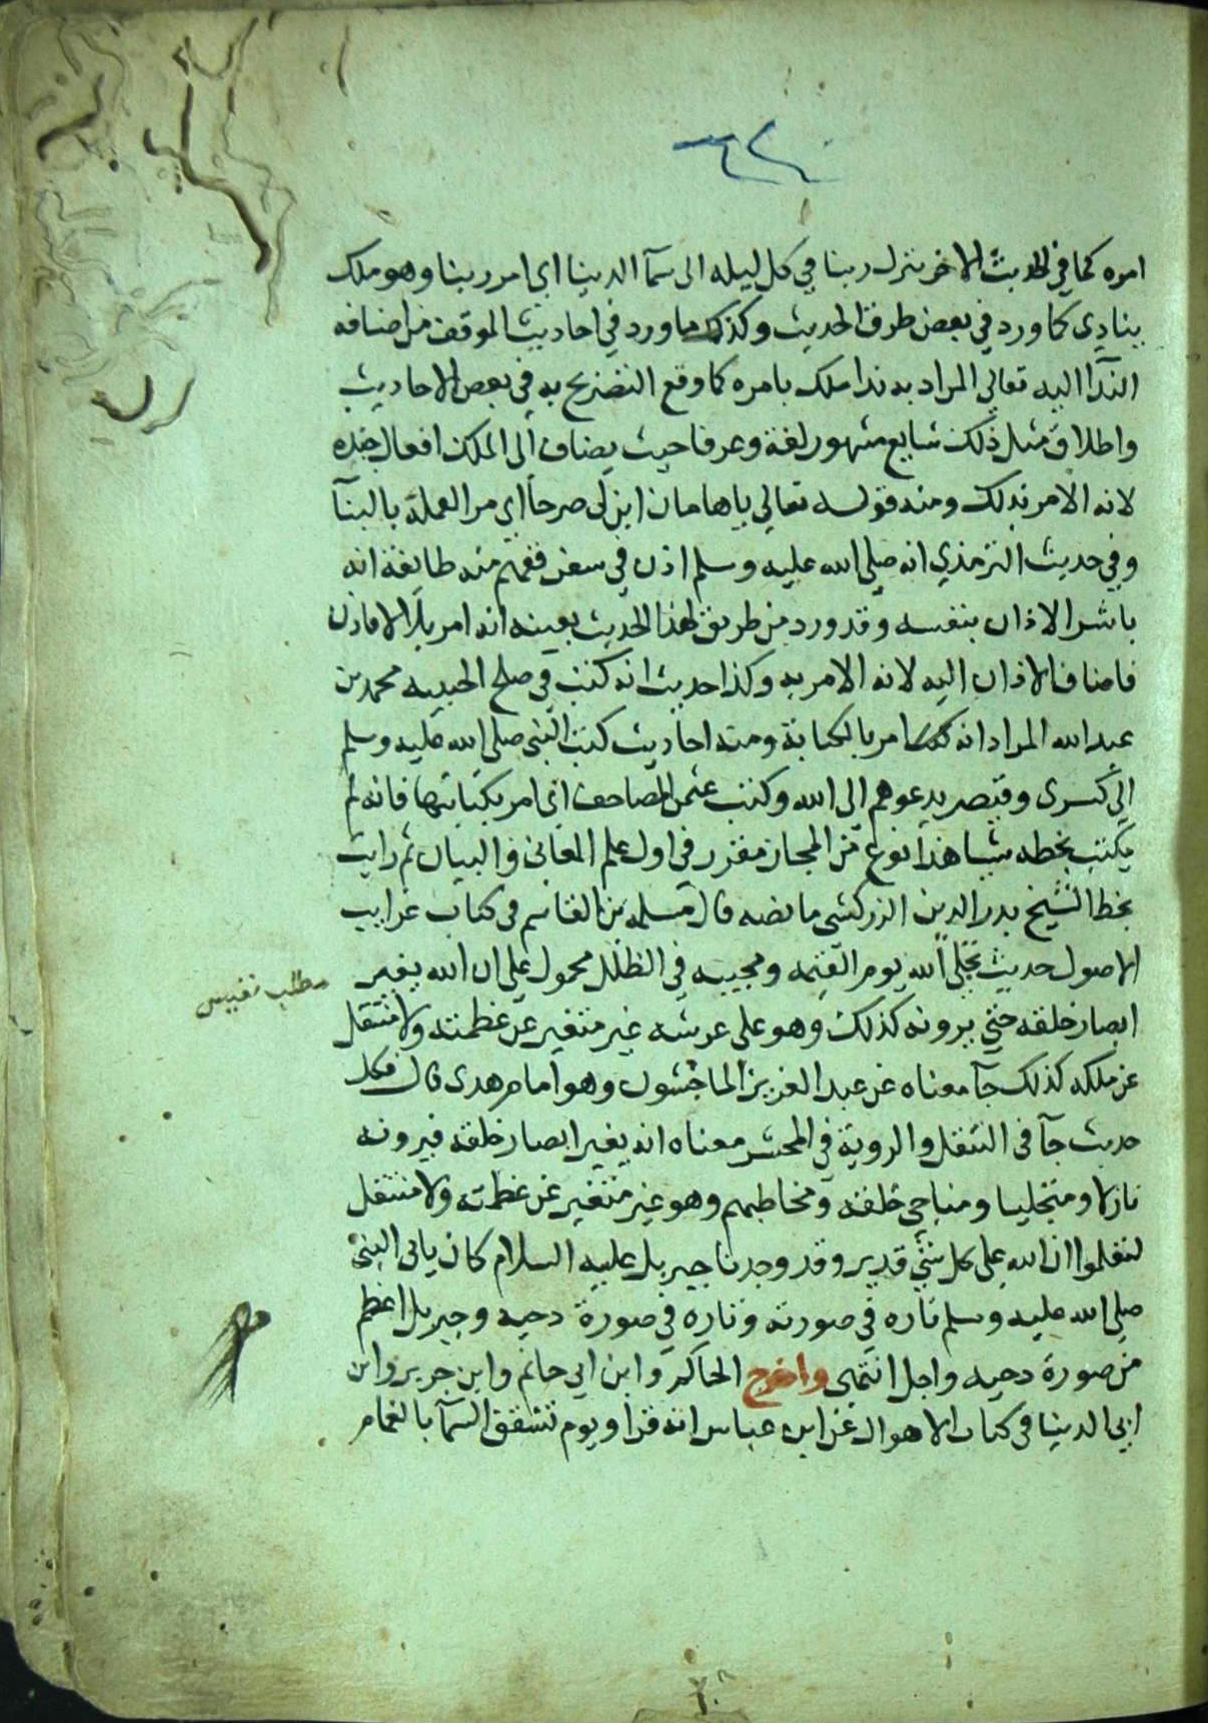 امره كما في الحديث الاخر ينزل ربنا في كل ليله الى سمآ الدينا اي امر ربنا وهو ملك
ينادي كما ورد في بعض طرف الحديث وكذلك ما ورد في احاديث الموقف من اضافه
الندآ اليه تعالي المراد به ندا ملك بامره كما وقع التصريح به في بعض الاحاديث
واطلاق مثل ذلك شايع مشهور لغة وعرفا حيث يضاف الى الملك افعال جنده
لانه الامر بذلك ومنه قوله تعالي ياهامان ابن لى صرحا اي مر العملة بالبنآ
وفي حديث الترمذي انه صلى الله عليه وسلم اذن في سفر ففهم منه طايفة انه
باشر الاذان بنفسه وقد ورد من طريق لهذا الحديث بعينه انه امر بلالا فاذن
فاضاف الاذان اليه لانه الامر به وكذا حديث انه كتب في صلح الحديبيه محمد بن
عبد الله المراد انه امر بالكتابة ومنه احاديث كتب النبي صلى الله عليه وسلم
الى كسرى وقيصر يدعوهم الى الله وكتب عثمن المصاحف اي امر بكتابتها فانه لم
يكتب بخطه شيا هذا نوع من المجاز مقرر في اول علم المعاني والبيان ثم رايت
بخط الشيخ بدر الدين الزركشي ما نصه قال مسلمه بن القاسم في كتاب غرايب
الاصول حديث تجلى الله يوم القيمه ومجييه في الظلل محمول على ان الله يغير
مطلب نفيس
ابصار خلقه حتي يرونه كذلك وهو على عرشه غير متغير عن عظمته ولا منتقل
عن ملكه كذلك جآ معناه عن عبد العزيز الماجشون وهو امام هدى قال فكل
حديث جآ في التنقل والروية في المحشر معناه انه يغير ابصار خلقه فيرونه
نازلا ومتجليا ومناجي خلقه ومخاطبهم وهو غير متغير عن عظمته ولا منتقل
لتعلموا ان الله على كل شي قدير وقد وجدنا جبريل عليه السلام كان ياتي النبي
صلى الله عليه وسلم تاره في صورته وتاره في صورة دحيه وجبريل اعظم
من صورة دحيه واجل انتهى واخرج الحاكم وابن ابي حاتم وابن جرير وابن
ابي الدينا في كتاب الاهوال عن ابن عباس انه قرا ويوم تشقق السمآ بالغمام